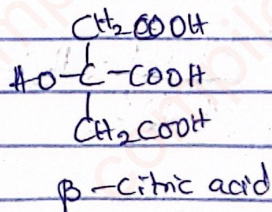 CH₂COOH
HO-C-COOH
CH₂COOH
β-Citric acid